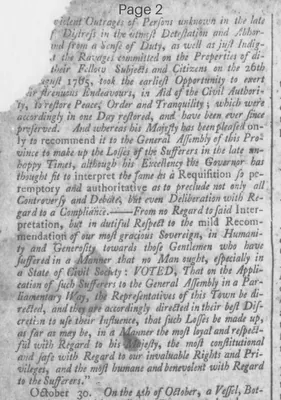 Page 2
violent Outrages of Persons unknown in the late
of Distress in the utmost Detestation and Abhor-
and from a Sense of Duty, as well as just Indig-
the Ravages committed on the Properties of di-
their Fellow Subjects and Citizens on the 26th
1765, took the earliest Opportunity to exert
strenuous Endeavours, in Aid of the Civil Authori-
ty, to restore Peace, Order and Tranquility; which were
accordingly in one Day restored, and have been ever since
preserved. And whereas his Majesty has been pleased on-
ly to recommend it to the General Assembly of this Pro-
vince to make up the Losses of the Sufferers in the late un-
happy Times, although his Excellency the Governor has
thought fit to interpret the same as a Requisition so pe-
remptory and authoritative as to preclude not only all
Controversy and Debate, but even Deliberation with Re-
gard to a Compliance.——From no Regard to said Inter-
pretation, but in dutiful Respect to the mild Recom-
mendation of our most gracious Sovereign, in Humani-
ty and Generosity towards those Gentlemen who have
suffered in a Manner that no Man ought, especially in
a State of Civil Society: VOTED, That on the Appli-
cation of such Sufferers to the General Assembly in a Par-
liamentary Way, the Representatives of this Town be di-
rected, and they are accordingly directed in their best Dis-
cretion to use their Influence, that such Losses be made up,
as far as may be, in a Manner the most loyal and respect-
ful with Regard to his Majesty, the most constitutional
and safe with Regard to our invaluable Rights and Pri-
vileges, and the most humane and benevolent with Regard
to the Sufferers."
October 30. On the 4th of October, a Vessel, Bot-